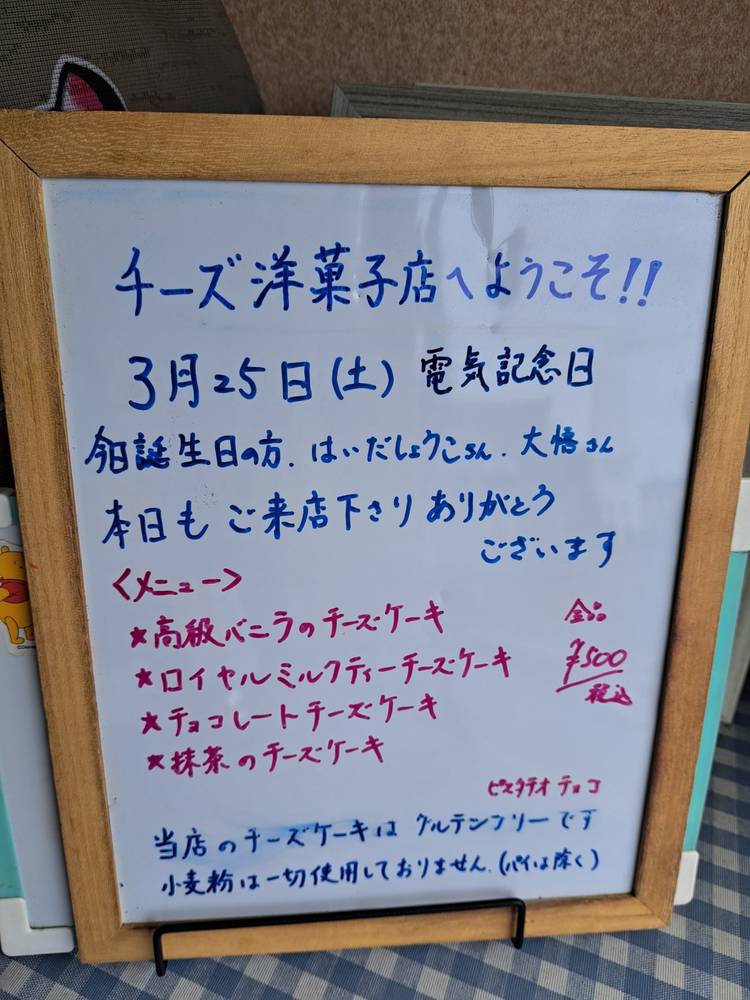 チーズ洋菓子店へようこそ!!
3月25日(土) 電気記念日
今日誕生日の方、はいだしょうこさん、大悟さん
本日もご来店下さりありがとう
ございます
<メニュー>
★高級バニラのチーズケーキ
★ロイヤルミルクティーチーズケーキ
★チョコレートチーズケーキ
★抹茶のチーズケーキ
全品
¥500
税込
ピスタチオチョコ
当店のチーズケーキは グルテンフリーです
小麦粉は一切使用しておりません。(パイは除く)